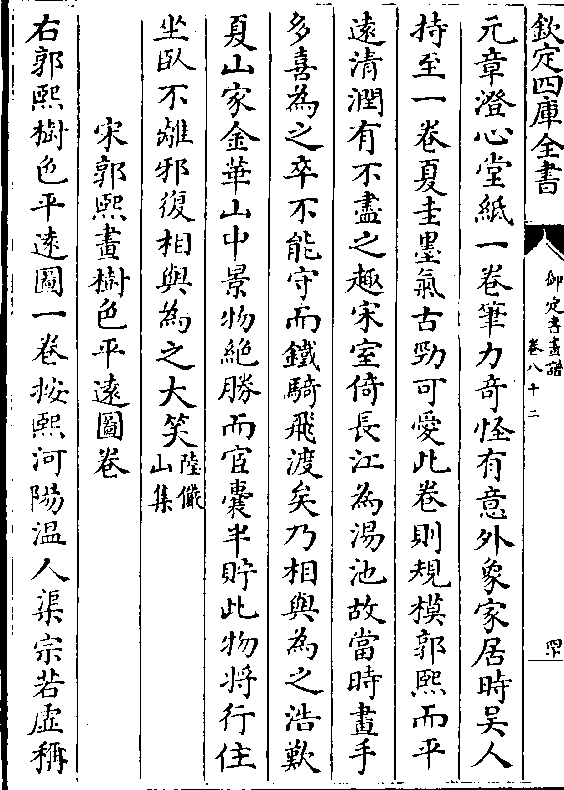 欽定四庫全書
御定書畫譜
卷八十二
元章澄心堂紙一卷筆力奇怪有意外象家居時吳人
持至一卷夏圭墨氣古勁可愛此卷則規模郭熙而平
遠清潤有不盡之趣宋室倚長江為湯池故當時畫手
多喜為之卒不能守而鐵騎飛渡矣乃相與為之浩歎
夏山家金華山中景物絶勝而宦囊半貯此物將行住
坐臥不離邪復相與為之大笑陸儼
山集
宋郭熙畫樹色平遠圖卷
右郭熙樹色平遠圖一卷按熙河陽温人渠宗若虛稱